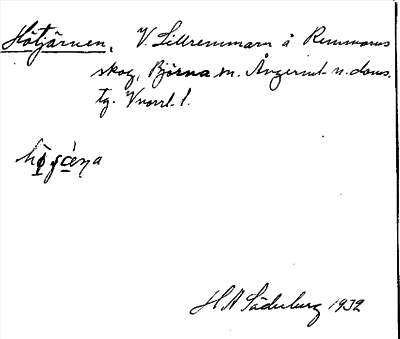 Hötjärnen, V. Lillremmarn å Remmarns
skog, Björna sn. Ångerml. n. doms.
tg. Vnorrl. l.
H A Söderberg 1932